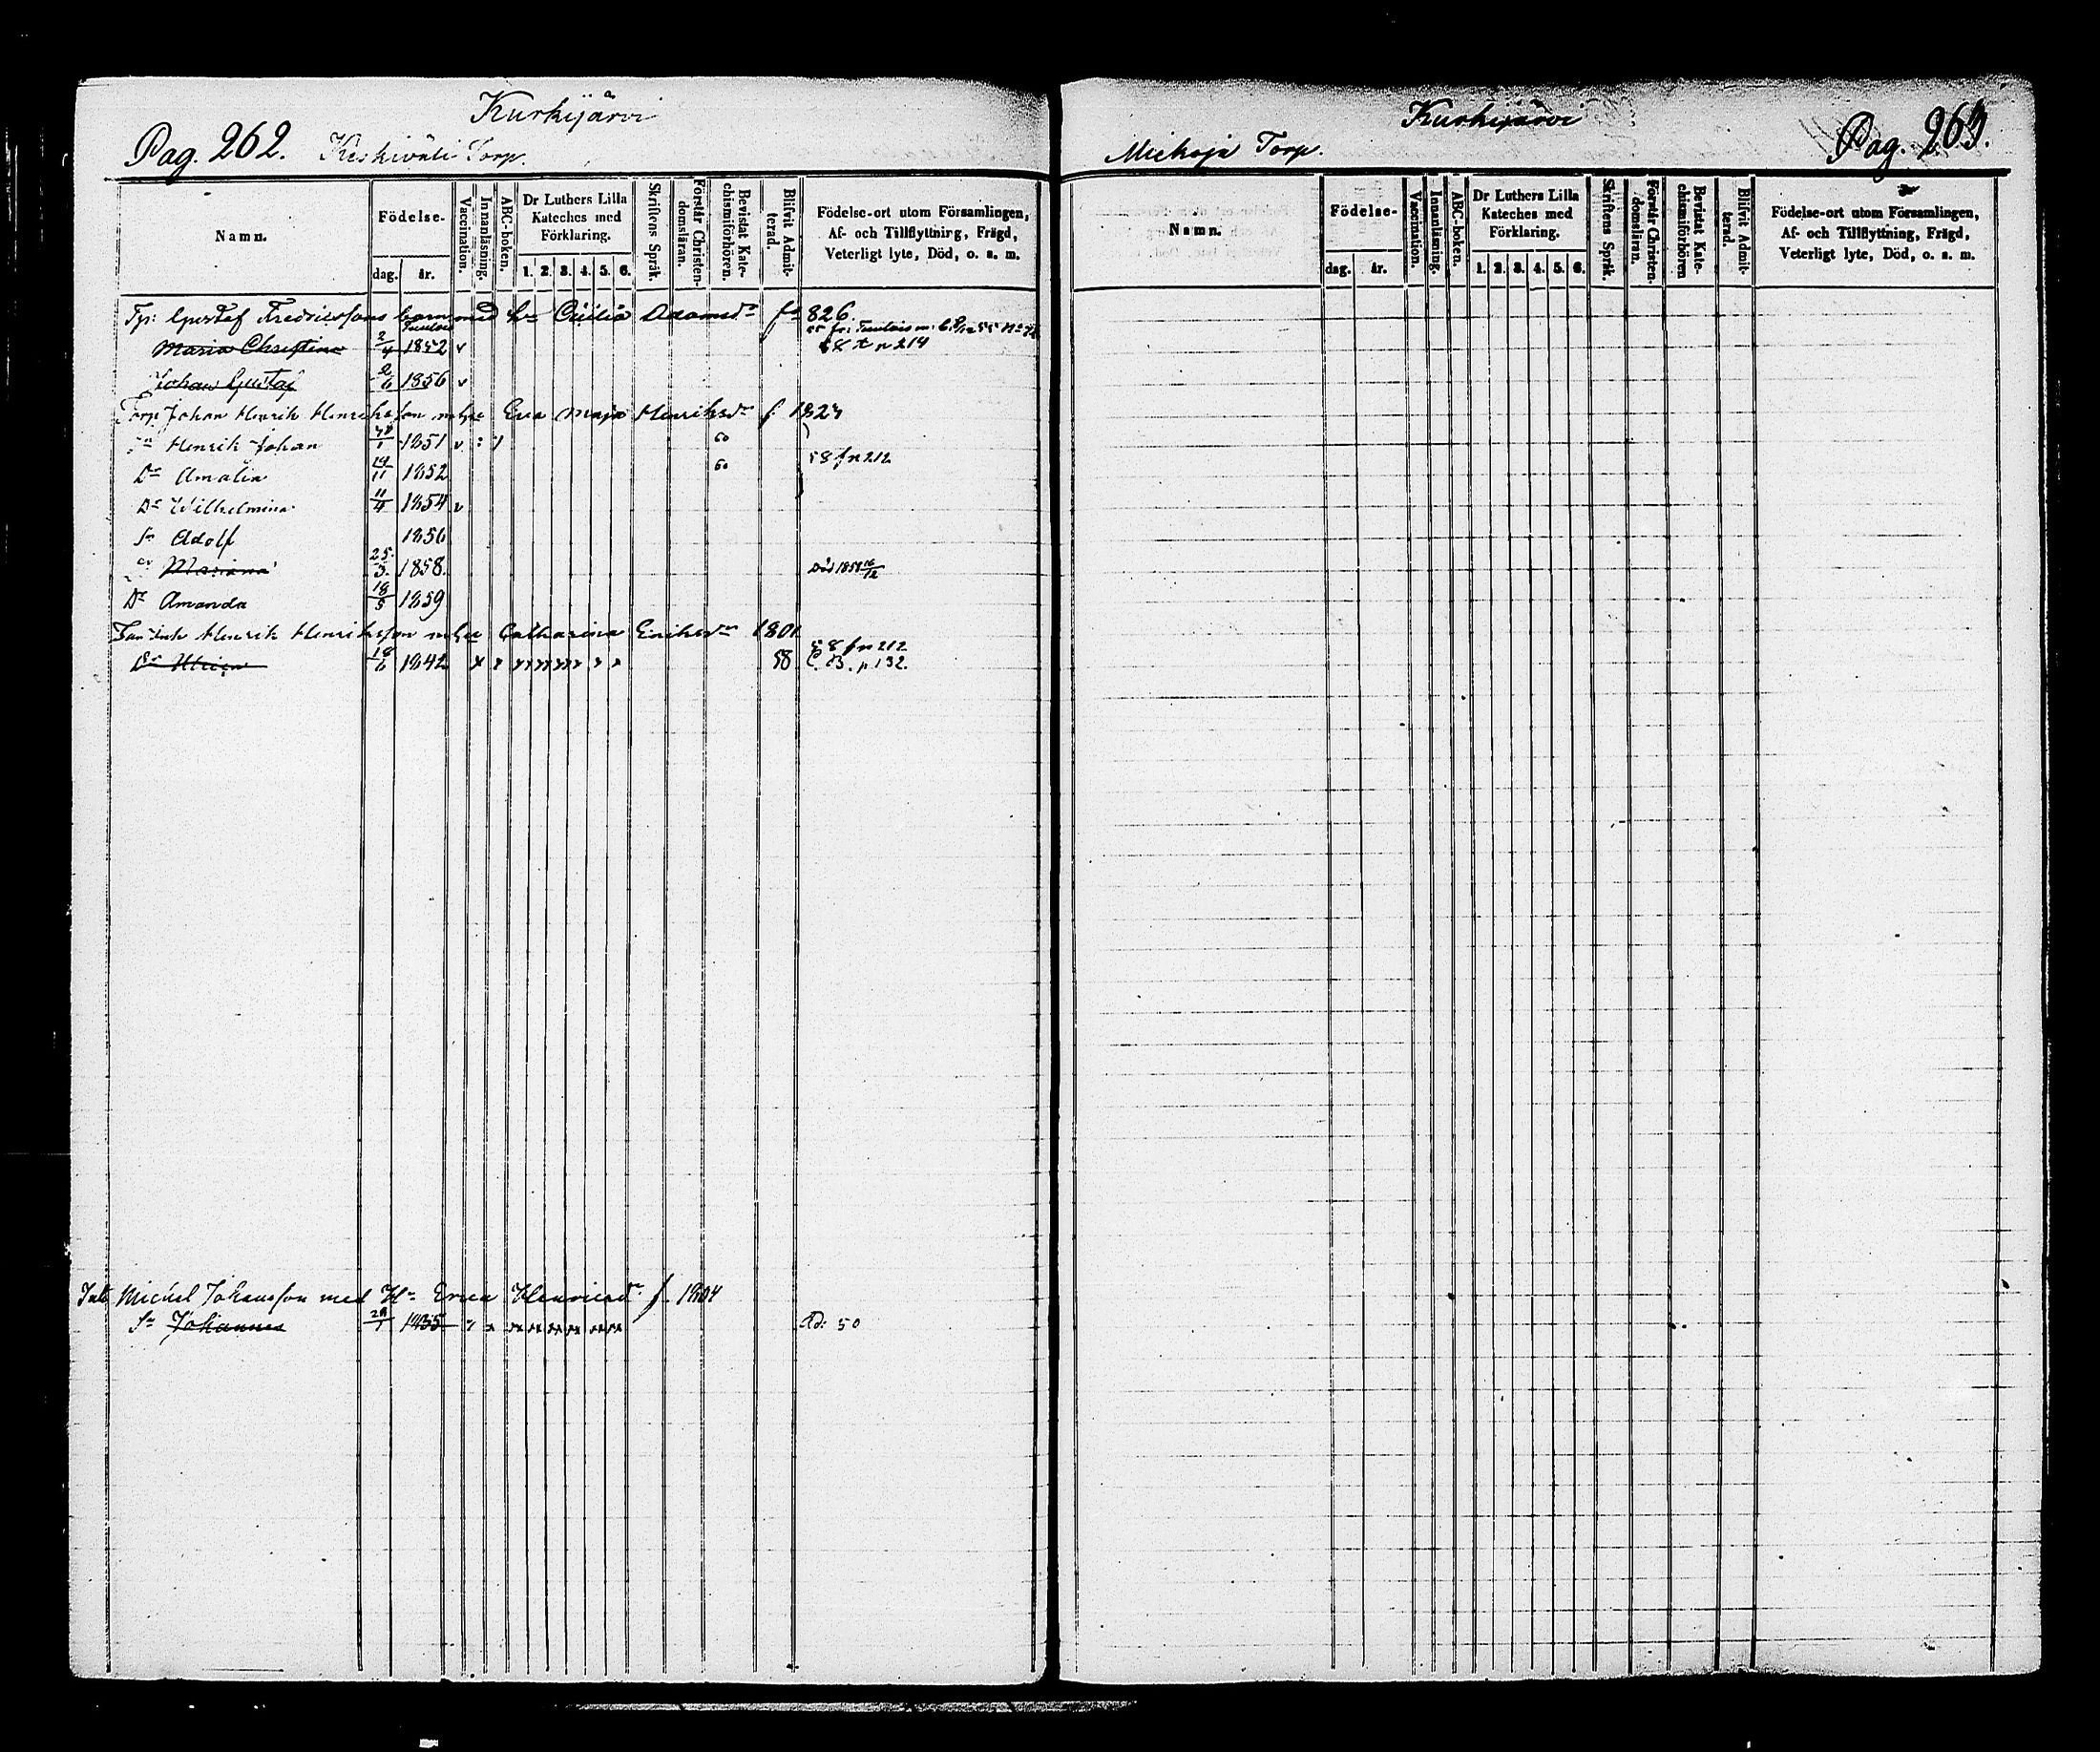 Kurkijärvi
Pag. 262. Keskiväli Torp.
Namn.
Födelse-
dag. år.
Vaccination.
Innanläsning.
ABC-boken.
Dr Luthers Lilla
Kateches med
Förklaring.
1. 2. 3. 4. 5. 6.
Skriftens Språk.
Förstår Christen-
domsläran.
Bevistat Kate-
chismiförhören.
Blifvit Admit-
terad.
Födelse-ort utom Församlingen,
Af- och Tillflyttning, Frägd,
Veterligt lyte, Död, o. s. m.
Tp: Gustaf Fredricssons barn med h. Cecilia Adamsdr f. 826.
Maria Christina 2/4 1852 v
58 t p 214
Johan Gustaf 2/6 1856 v
Torp. Johan Henrik Henriksson m hu Eva Maja Henriksdr f. 182
Sn Henrik Johan 1851 v 60
Dr Amalia 1852 60 58 f p 212
Dr Wilhelmina 11/4 1854 v
Sn Adolf 1856
Mariana 25/3. 1858. Död 1858 16/12
Dr Amanda 18/5 1859
Henrik Henriksson m hu Catharina Eriksdr 1801
58 f p 212
Dr Ulrica 18/6 1842 58 C. B. p 132.
Inh Michel Johansson med H. Erica Henricsdr f. 1804
Sn Johannes 1835 Ad: 50
Kurkijärvi
Mickoja Torp. Pag. 263.
Namn.
Födelse-
dag. år.
Vaccination.
Innanläsning.
ABC-boken.
Dr Luthers Lilla
Kateches med
Förklaring.
1. 2. 3. 4. 5. 6.
Skriftens Språk.
Förstår Christen-
domsläran.
Bevistat Kate-
chismiförhören
Blifvit Admit-
terad.
Födelse-ort utom Församlingen,
Af- och Tillflyttning, Frägd,
Veterligt lyte, Död, o. s. m.